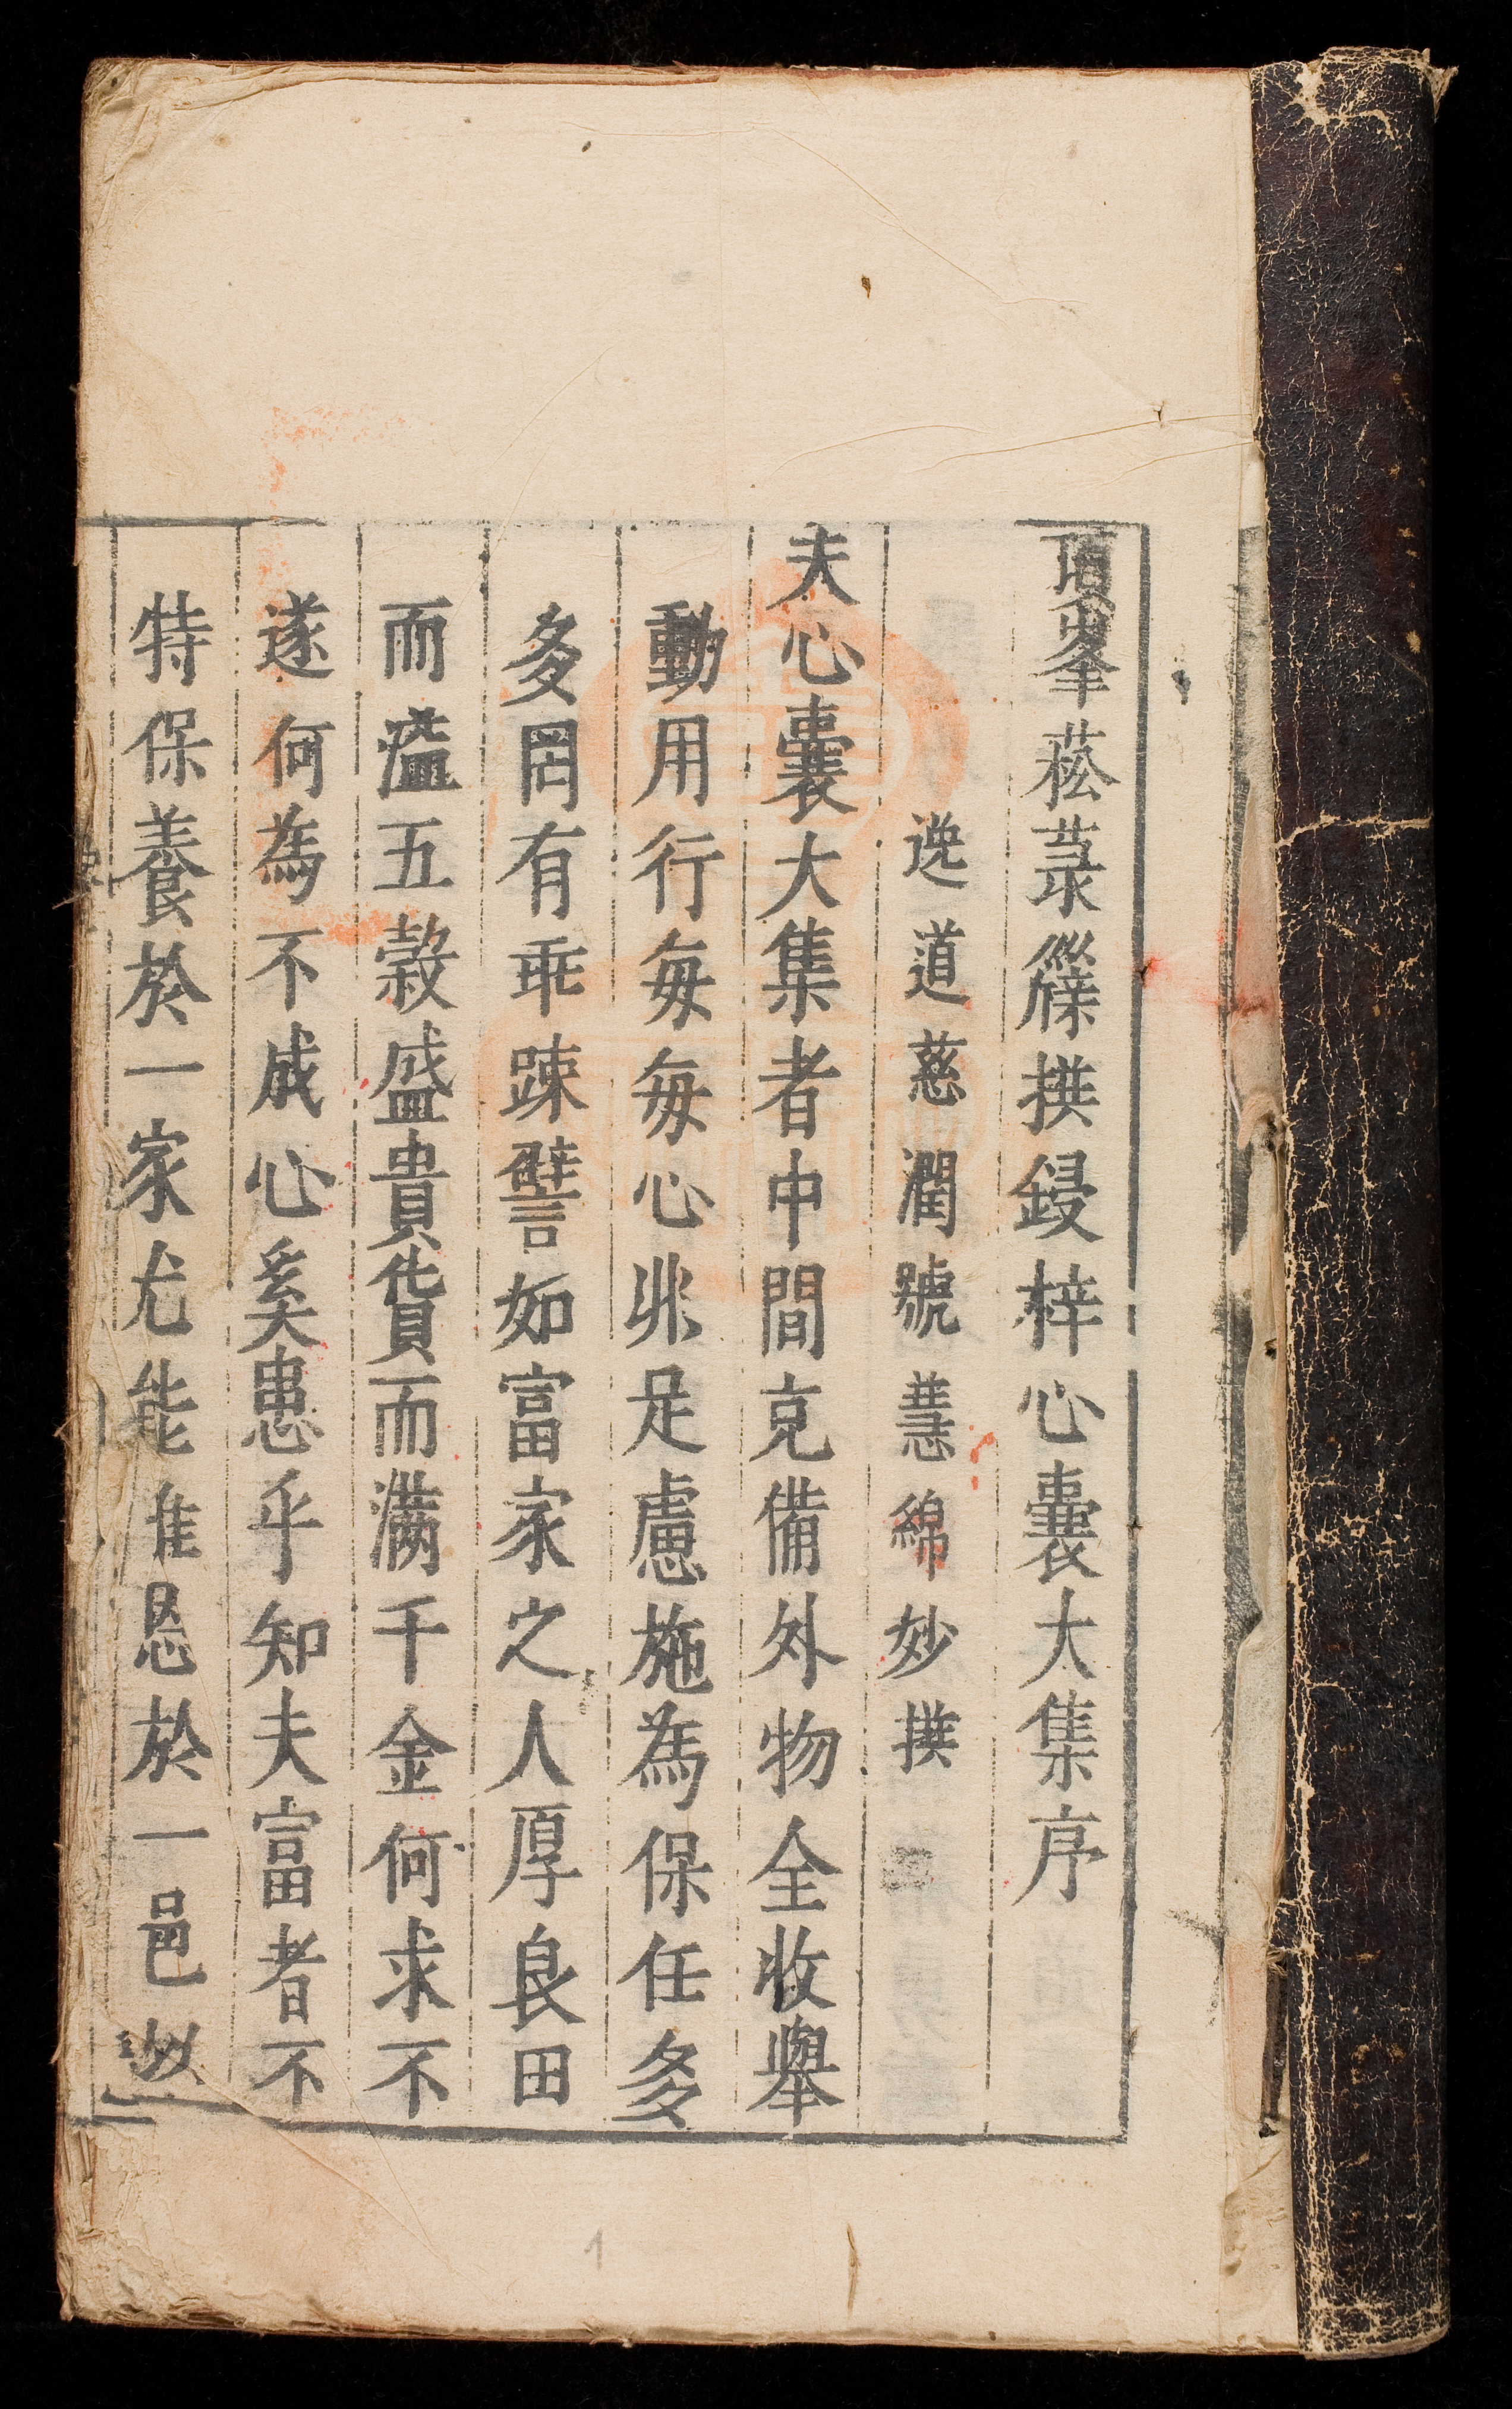 頂峯菘菉𥵃撰鋟梓心囊大集序
逸道慈潤號慧綿妙撰
夫心囊大集者中間克備外物全收舉
動用行每每心非足慮施為保任多
多罔有乖踈譬如富家之人厚良田
而溢五榖盛貴貨而滿千金何求不
遂何為不成心奚患乎知夫富者不
特保養於一家尤能惟恩於一邑